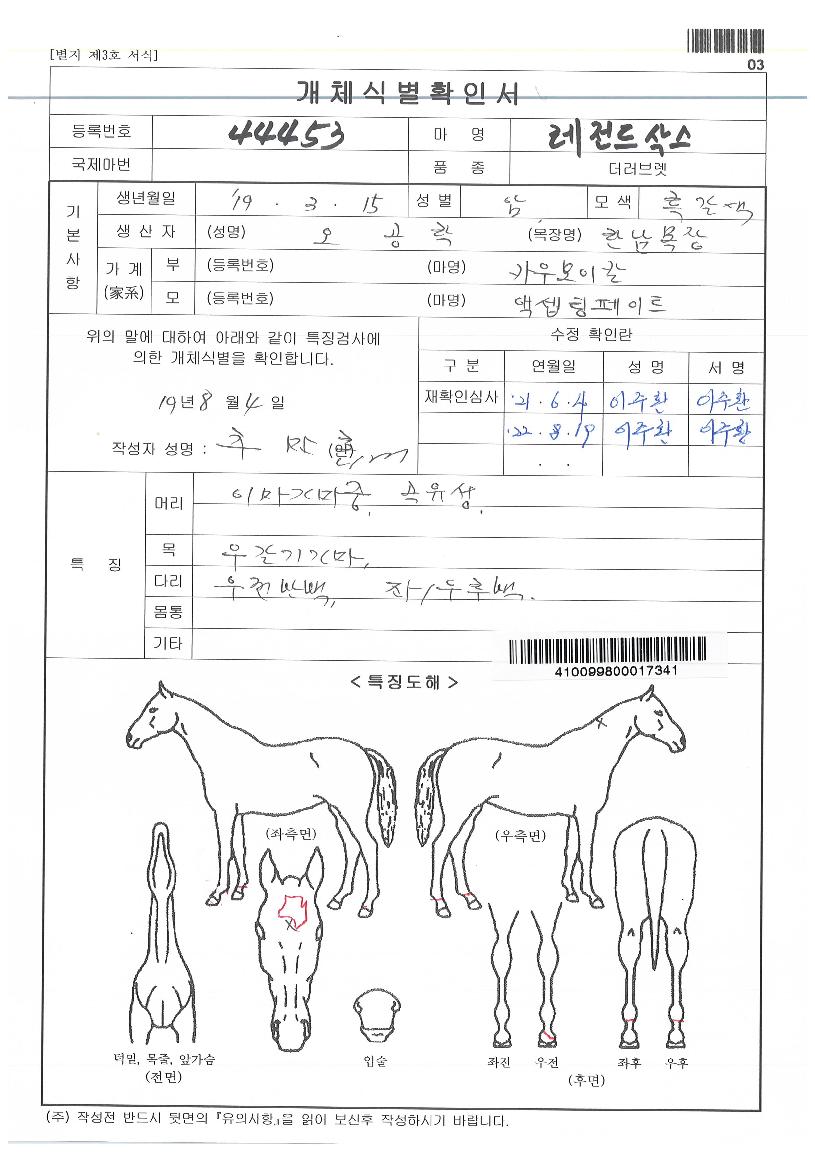 [별지 제3호 서식]
03
개체식별확인서
등록번호 44453 마 명 레전드삭스
국제마번 품 종 더러브렛
기본사항
생년월일 '19 . 3 . 15 성 별 암 모 색 흑갈색
생 산 자 (성명) 오 공 학 (목장명) 한남목장
가 계 (家系) 부 (등록번호) (마명) 카우보이칼
모 (등록번호) (마명) 액셉팅페이트
위의 말에 대하여 아래와 같이 특징검사에
의한 개체식별을 확인합니다.
19년 8 월 4 일
작성자 성명 : (인)
수정 확인란
구 분 연월일 성 명 서 명
재확인심사 '21 . 6 . 4 이주환 이주환
'22 . 8 . 19 이주환 이주환
. .
특 징
머리 이마가마중, 곡유성.
목 우갈기가마,
다리 우전반백, 좌/우후백.
몸통
기타
410099800017341
< 특징도해 >
(좌측면) (우측면)
턱밑, 목줄, 앞가슴
(전면)
입술
좌진 우전 좌후 우후
(후면)
(주) 작성전 반드시 뒷면의 『유의사항』을 읽어 보신후 작성하시기 바랍니다.